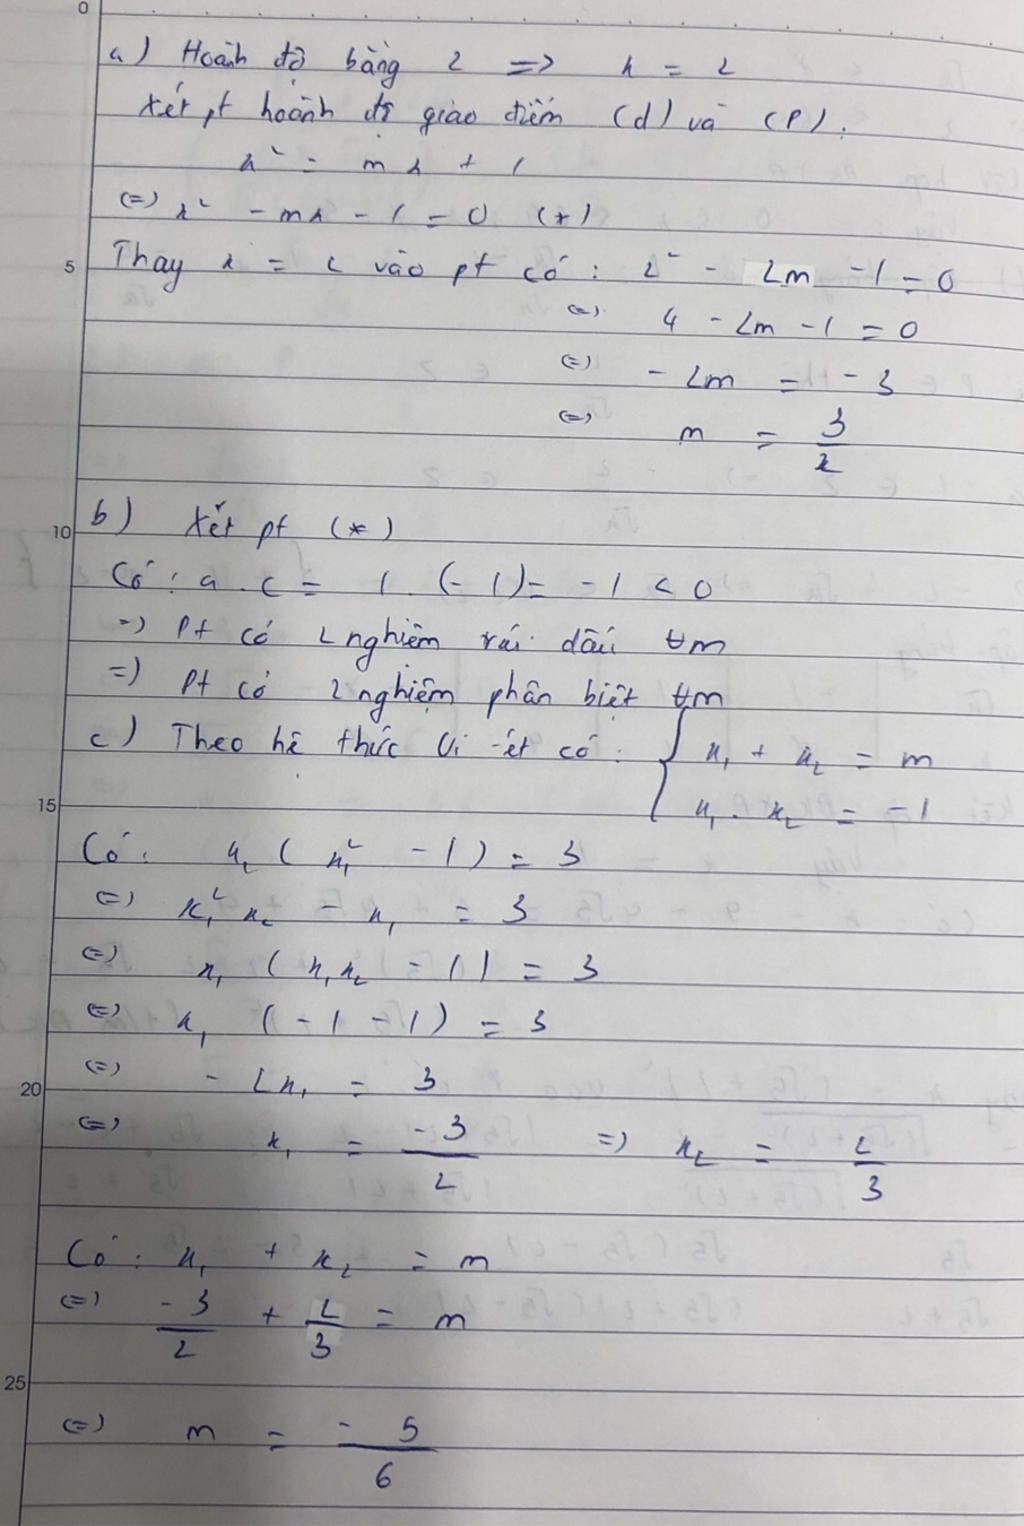 0
a) Hoành độ bằng 2 => x = 2
Xét pt hoành độ giao điểm (d) và (P).
x² = mx + 1
(=) x² - mx - 1 = 0 (*)
5 Thay x = 2 vào pt có : 2² - 2m - 1 = 0
(=) 4 - 2m - 1 = 0
(=) - 2m = - 3
(=) m = 3/2
10 b) Xét pt (*)
Có : a . c = 1 . (- 1) = - 1 < 0
=) Pt có 2 nghiệm trái dấu ∀m
=) Pt có 2 nghiệm phân biệt ∀m
c) Theo hệ thức Vi-ét có : { x₁ + x₂ = m
15 x₁ . x₂ = - 1
Có : x₂ ( x₁² - 1 ) = 3
(=) x₁² x₂ - x₁ = 3
(=) x₁ ( x₁x₂ - 1 ) = 3
(=) x₁ ( - 1 - 1 ) = 3
20 (=) - 2x₁ = 3
(=) x₁ = -3/2 =) x₂ = 2/3
Có : x₁ + x₂ = m
(=) -3/2 + 2/3 = m
25
(=) m = -5/6